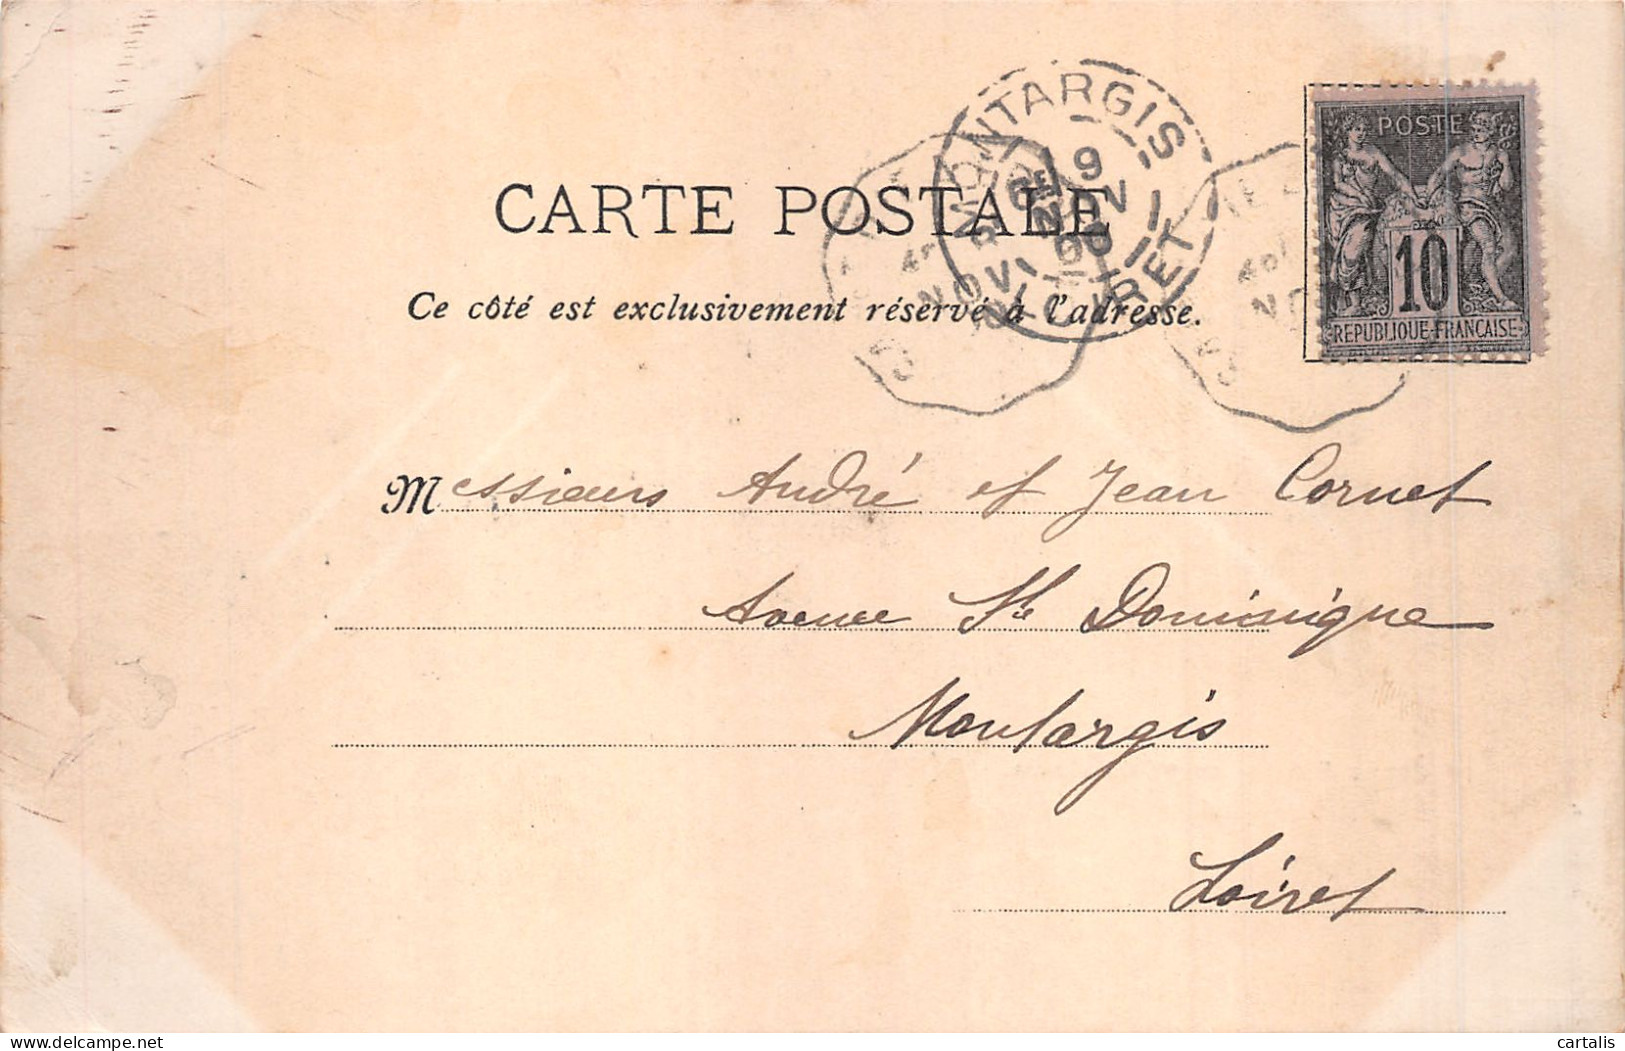 CARTE POSTALE
Ce côté est exclusivement réservé à l'adresse.
MONTARGIS
9
NOV
00
LOIRET
NOV
POSTE
10
REPUBLIQUE-FRANCAISE
Messieurs André et Jean Cornet
Avenue St Dominique
Montargis
Loiret
delcampe.net
cartalis